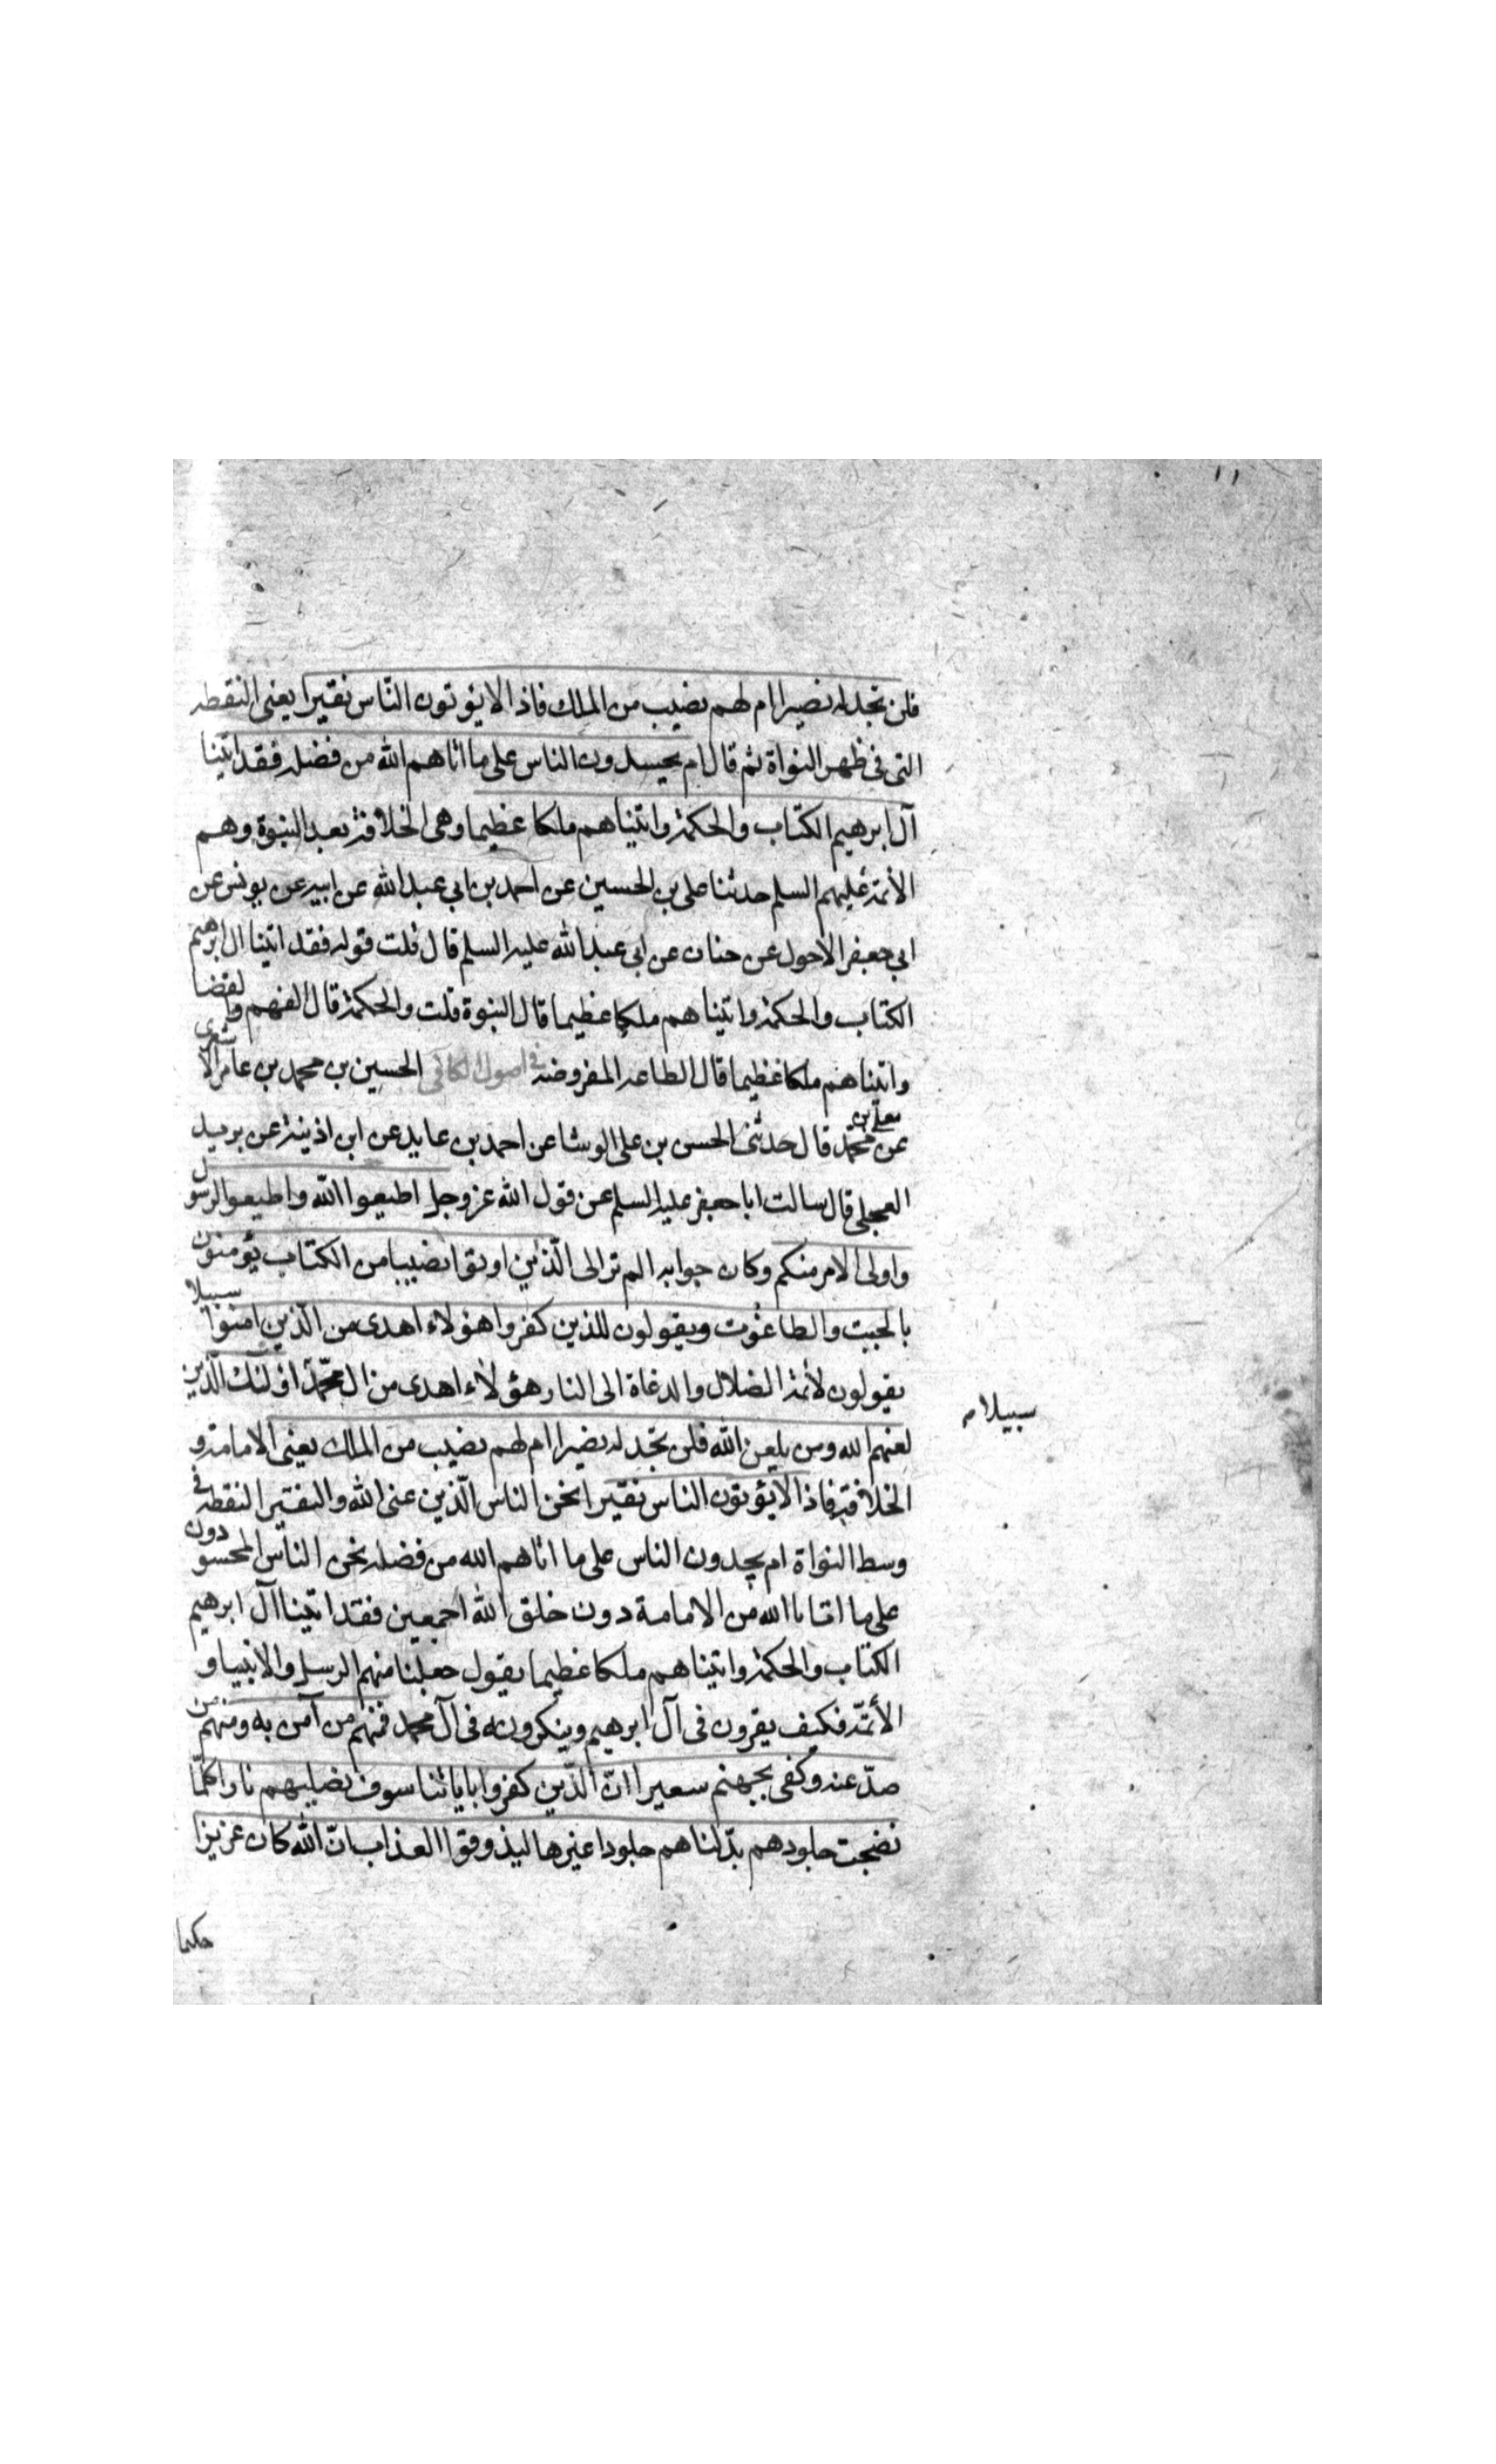 ١١
فلن تجد له نصيرا ام لهم نصيب من الملك فاذا لا يؤتون النّاس نقيرا يعنى النقطه
التى فى ظهر النواة ثم قال ام يحسدون الناس على ما اتاهم الله من فضله فقد اتينا
آل ابرهيم الكتاب والحكمة واتيناهم ملكا عظيما وهى الخلافة بعد النبوة وهم
الأئمة عليهم السلم حدثنا على بن الحسين عن احمد بن ابى عبد الله عن ابيه عن يونس عن
ابى جعفر الاحول عن حنان عن ابى عبد الله عليه السلم قال قلت قوله فقد اتينا ال ابرهيم
الكتاب والحكمة واتيناهم ملكا عظيما قال النبوة قلت والحكمة قال الفهم والقضا
واتيناهم ملكا عظيما قال الطاعه المفروضه فى اصول الكافى الحسين بن محمد بن عامر الاشعرى
عن معلى بن محمّد قال حدثنى الحسن بن على الوشا عن احمد بن عايد عن ابن اذينة عن بريد
العجلى قال سالت ابا جعفر عليه السلم عن قول الله عز وجل اطيعوا الله واطيعوا الرسول
واولى الامر منكم وكان جوابه الم تر الى الّذين اوتوا نصيبا من الكتاب يؤمنون
بالجبت والطاغوت ويقولون للذين كفروا هؤلاء اهدى من الّذين امنوا سبيلا
يقولون لأئمة الضلال والدعاة الى النار هؤلاء اهدى من ال محمّد اولئك الّذين
سبيلا م
لعنهم الله ومن يلعن الله فلن تجد له نصيرا ام لهم نصيب من الملك يعنى الامامة و
الخلافة فاذا لا يؤتون الناس نقيرا نحن الناس الّذين عنى الله والنقير النقطه فى
وسط النواة ام يحسدون الناس على ما اتاهم الله من فضله نحن الناس المحسودون
على ما اتانا الله من الامامة دون خلق الله اجمعين فقد اتينا آل ابرهيم
الكتاب والحكمة واتيناهم ملكا عظيما يقول جعلنا منهم الرسل والانبيا و
الأئمّة فكيف يقرون فى آل ابرهيم وينكرونه فى آل محمد فمنهم من آمن به ومنهم من
صدّ عنه وكفى بجهنم سعيرا انّ الّذين كفروا باياتنا سوف نصليهم نارا كلّما
نضجت جلودهم بدّلناهم جلودا غيرها ليذوقوا العذاب انّ الله كان عزيزا
حكيما